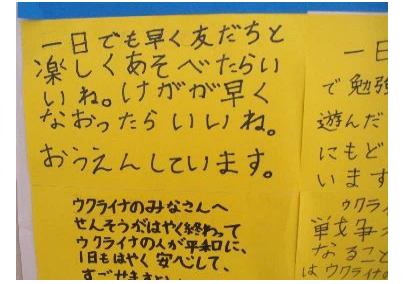 一日でも早く友だちと
楽しくあそべたらい
いね。けがが早く
なおったらいいね。
おうえんしています。
ウクライナのみなさんへ
せんそうがはやく終わって
ウクライナの人が平和に、
1日もはやく安心して、
一日
で勉強
遊んだ
にもど
います
ウクライ
戦争
なること
はウクライナの